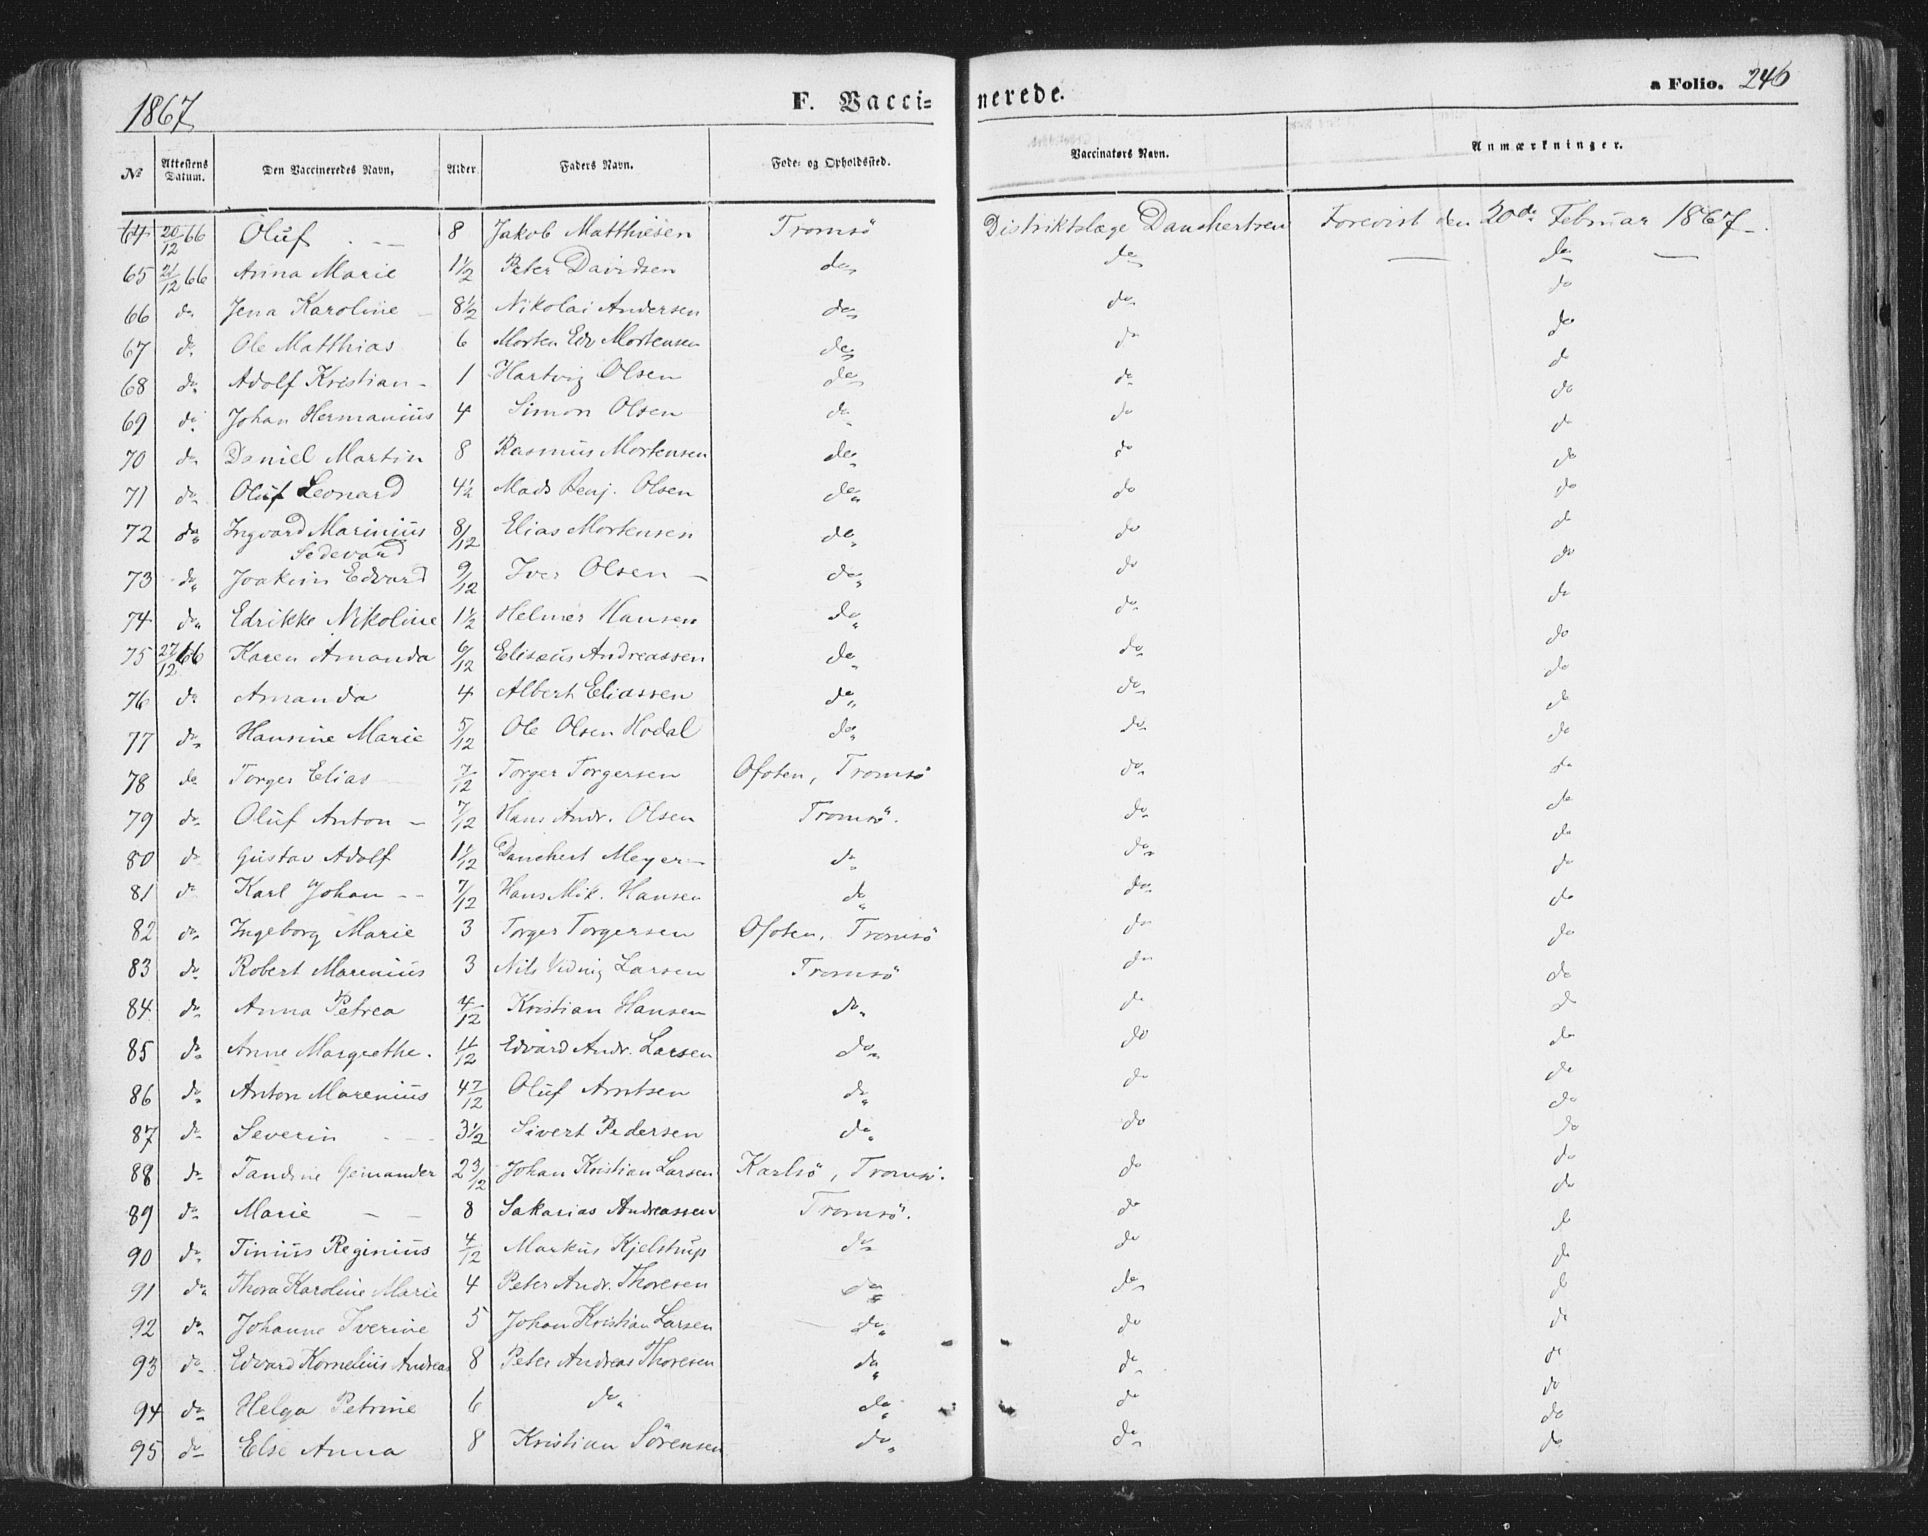 1867
F. Vacci= nerede.
a Folio. 246
No Attestens Datum. Den Vaccineredes Navn, Alder Faders Navn. Føde- og Opholdssted. Vaccinatørs Navn. Anmærkninger.
64 20/12 66 Oluf 8 Jakob Matthiesen Tromsö Distriktslæge Danchertsen Forevist den 20de Februar 1867
65 21/12 66 Anna Marie 1½ Peter Davidsen do do do
66 do Jena Karoline 8½ Nikolai Andersen do do do
67 do Ole Matthias 6 Morten Edv Mortensen do do do
68 do Adolf Kristian 1 Hartvig Olsen do do do
69 do Johan Hermanius 4 Simon Olsen do do do
70 do Daniel Martin 8 Rasmus Mortensen do do do
71 do Oluf Leonard 4½ Mads Benj. Olsen do do do
72 do Ingvard Marinius 8/12 Elias Mortensen do do do
Sedevard
73 do Joakim Edvard 9/12 Iver Olsen do do do
74 do Edrikke Nikoline 1½ Helmer Hansen do do do
75 27/12 66 Karen Amanda 6/12 Elisæus Andreassen do do do
76 do Amanda 4 Albert Eliassen do do do
77 do Hansine Marie 5/12 Ole Olsen Hodal do do do
78 do Torger Elias 7/12 Torger Torgersen Ofoten, Tromsö do do
79 do Oluf Anton 7/12 Hans Andr. Olsen Tromsö. do do
80 do Gustav Adolf 1 1/12 Danchert Meyer do do do
81 do Karl Johan 7/12 Hans Mik. Hansen do do do
82 do Ingeborg Marie 3 Torger Torgersen Ofoten, Tromsö do do
83 do Robert Marenius 3 Nils Larsen Tromsö do do
84 do Anna Petrea 4/12 Kristian Hansen do do do
85 do Anne Margrethe. 11/12 Edvard Andr. Larsen do do do
86 do Anton Marenius 4 7/12 Oluf Arntsen do do do
87 do Severin 3½ Sivert Pedersen do do do
88 do Tandine 2 3/12 Johan Kristian Larsen Karlsö, Tromsö. do do
89 do Marie 8 Sakarias Andreassen Tromsö. do do
90 do Tinius Reginius 4/12 Markus Kjelstrup do do do
91 do Thora Karoline Marie 4 Peter Andr. Thoresen do do do
92 do Johanne Iverine 5 Johan Kristian Larsen do do do
93 do Edvard Kornelius Andreas 8 Peter Andreas Thoresen do do do
94 do Helga Petrine 6 do do do do
95 do Else Anna 8 Kristian Sörensen do do do